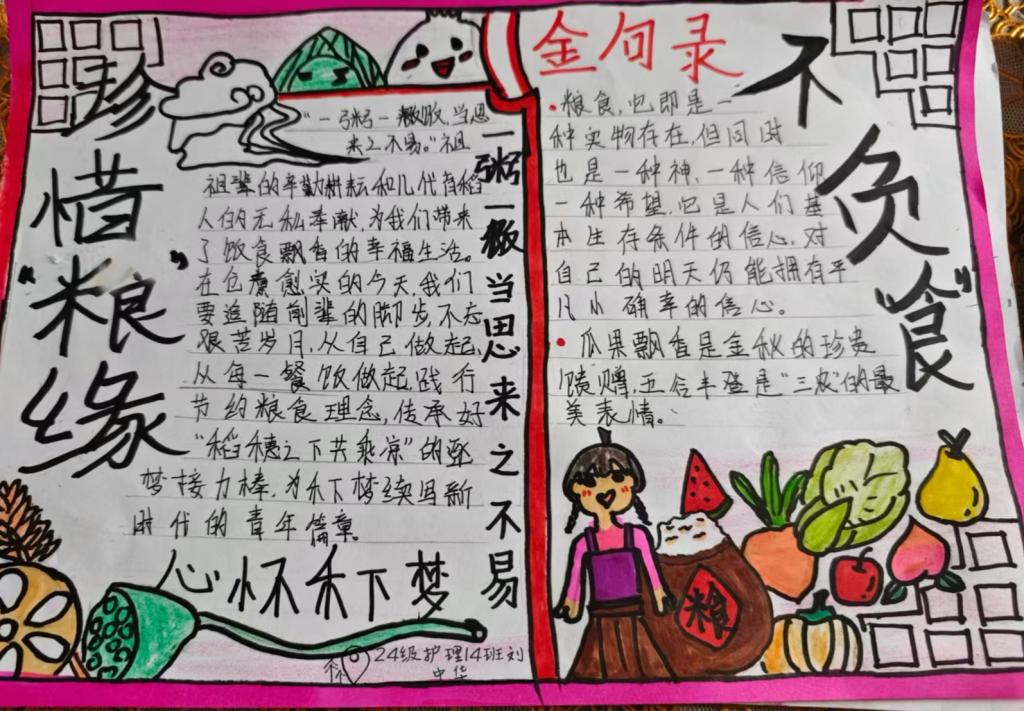 珍惜"粮"缘
"一粥一粄饭,当思
来之不易。"祖
祖辈的辛勤耕耘和几代育稻
人的无私奉献,为我们带来
了饭食飘香的幸福生活。
在仓廪愈实的今天,我们
要追随前辈的脚步,不忘
艰苦岁月,从自己做起,
从每一餐饭做起,践行
节约粮食理念,传承好
"稻穗之下共乘凉"的逐
梦接力棒,为禾下梦续写新
时代的青年篇章。
一粥一饭当思来之不易
心怀禾下梦
24级护理14班刘
中华
金句录
粮食,它即是一
种实物存在,但同时
也是一种神,一种信仰
一种希望,它是人们基
本生存条件的信心,对
自己的明天仍能拥有平
凡小确幸的信心。
瓜果飘香是金秋的珍贵
馈赠,五谷丰登是"三农"的最
美表情。
不负"食"
粮